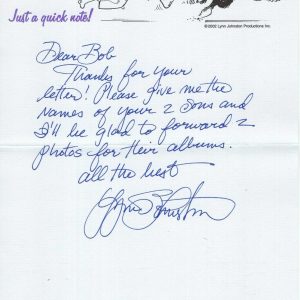 Just a quick note!
©2002 Lynn Johnston Productions Inc.
Dear Bob
Thanks for your
letter! Please give me the
names of your 2 sons and
I'll be glad to forward 2
photos for their albums.
all the best
Lynn Johnston